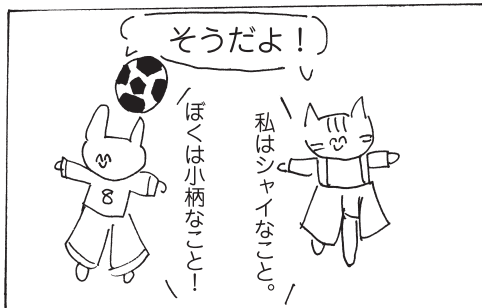 そうだよ！
私はシャイなこと。
ぼくは小柄なこと！
8